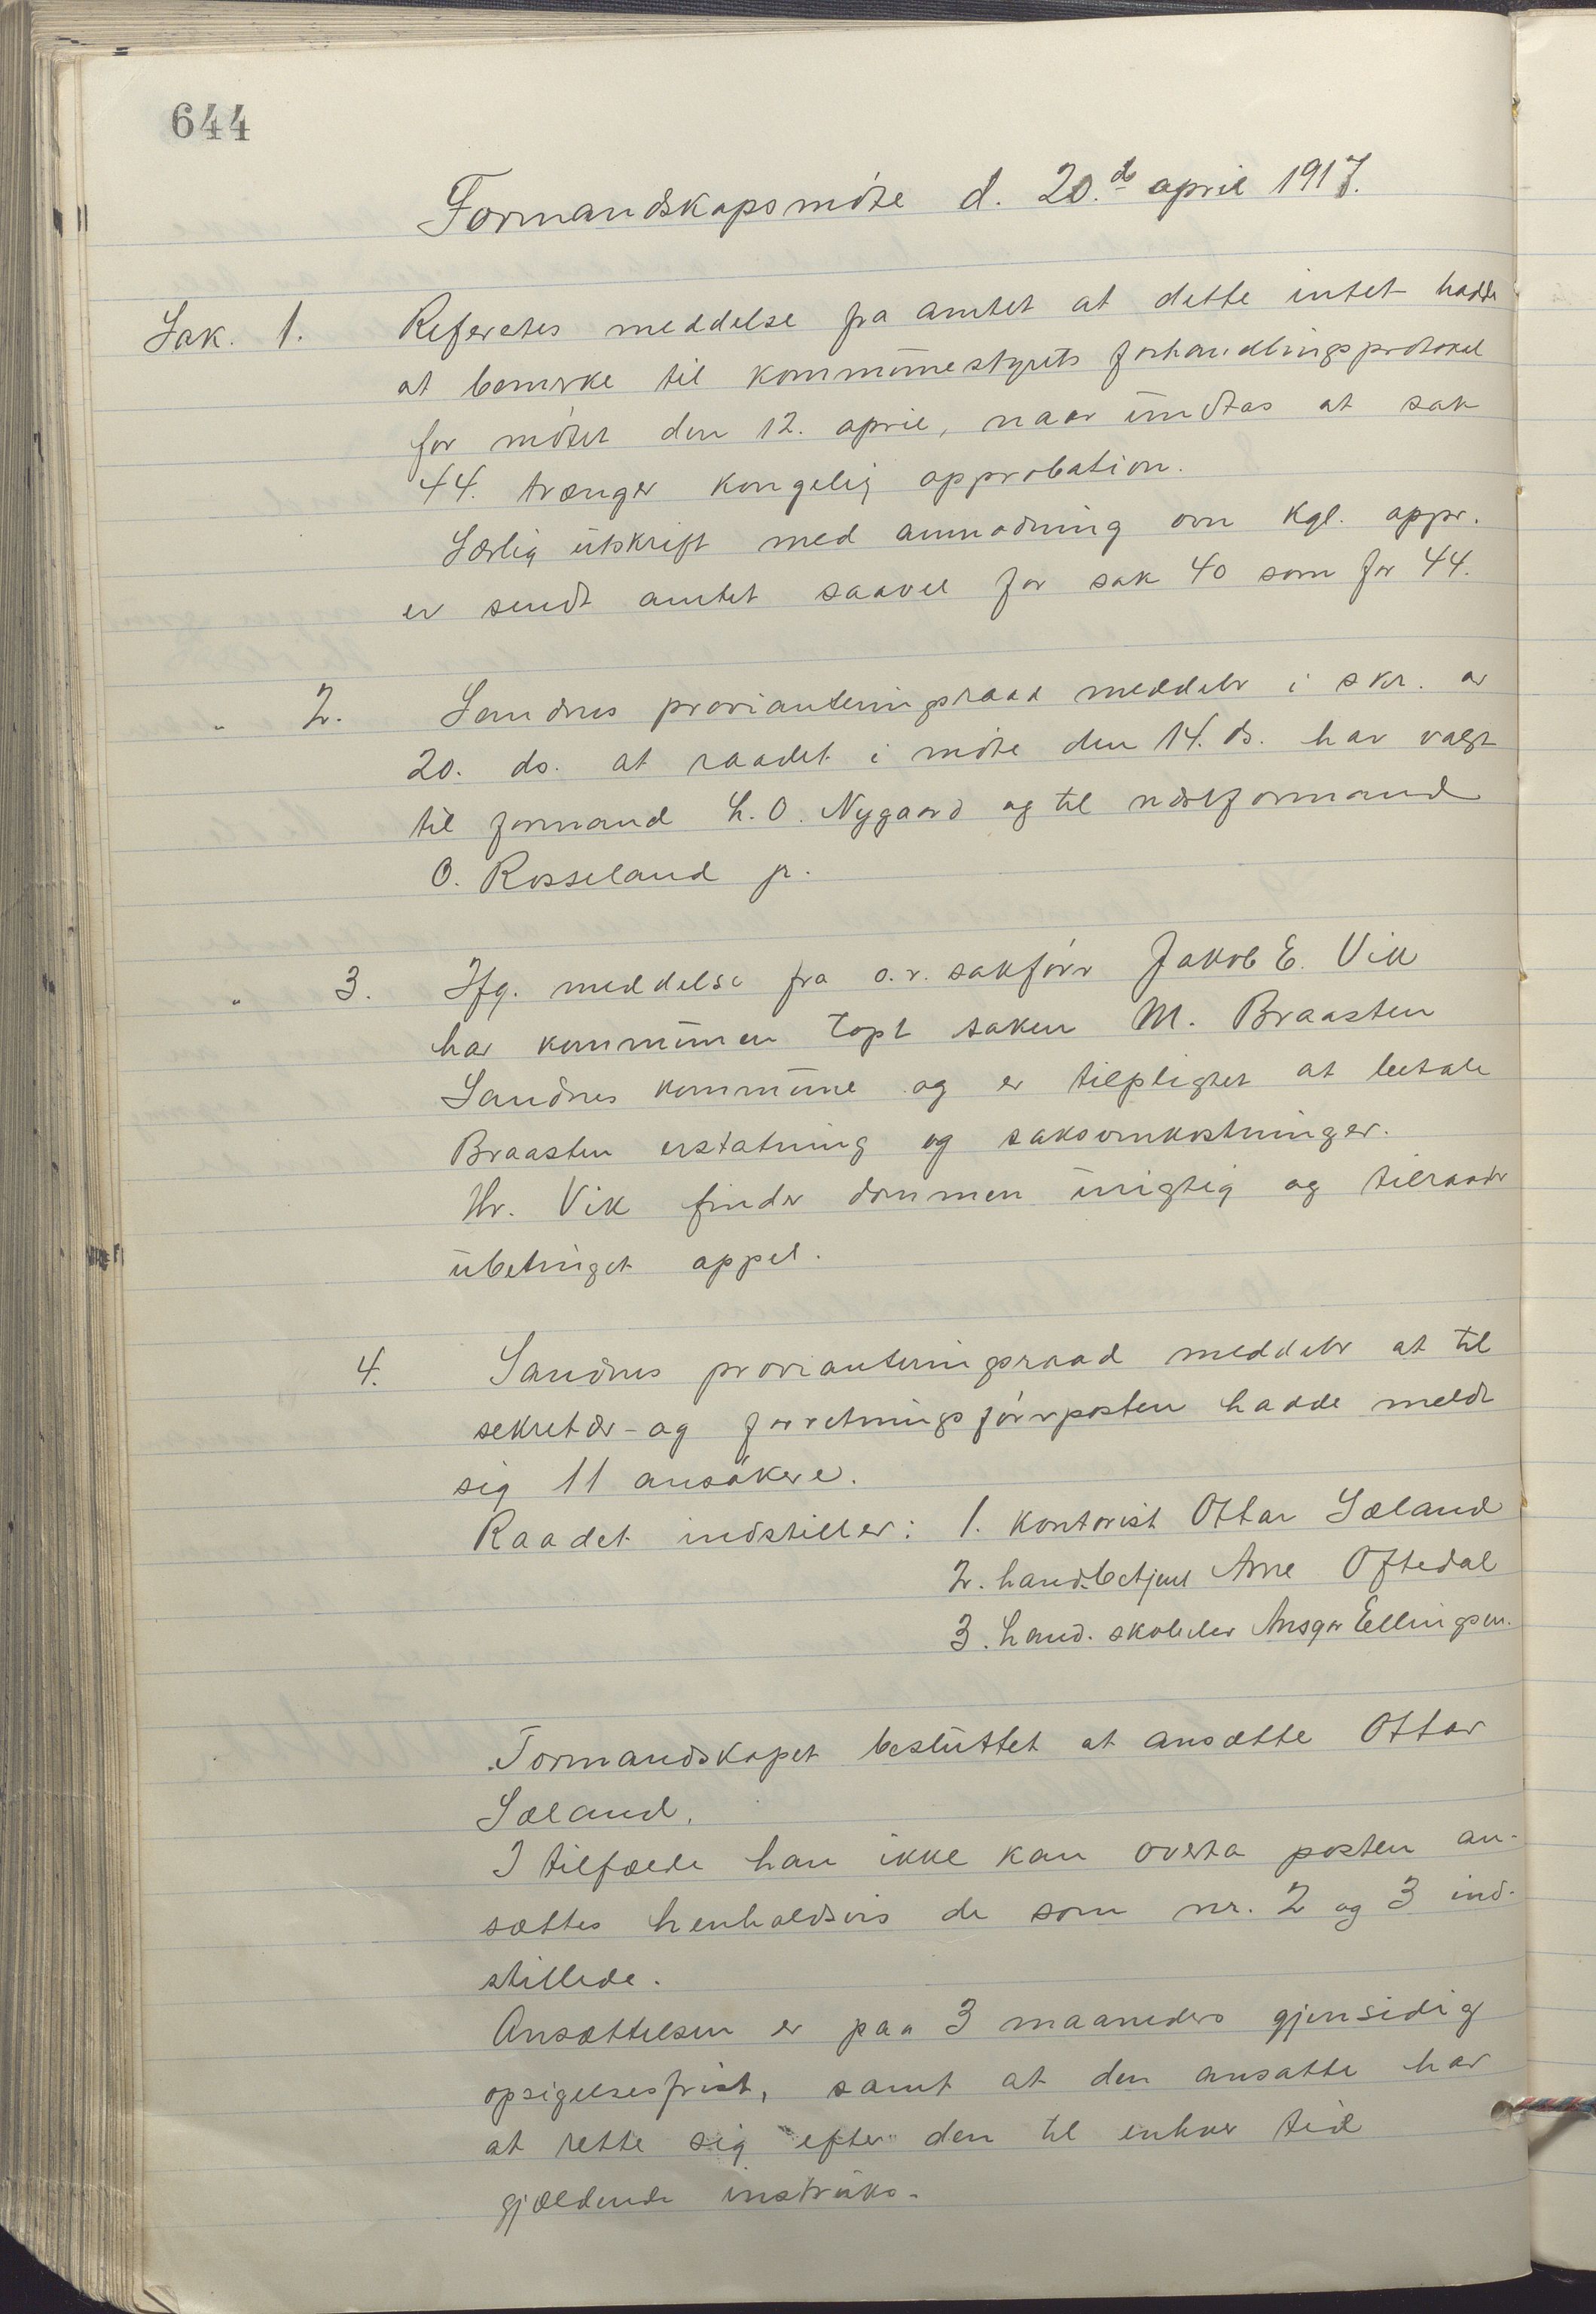 644
Formandskapsmöte d. 20.de april 1917.
Sak. 1. Referertes meddelse fra amtet at dette intet hadde
at bemerke til kommünestyrets forhandlingsprotokol
for mötet den 12. april, naar ündtas at sak
44. trænger kongelig approbation.
Særlig ütskrift med anmodning om kgl. appr.
er sendt amtet saavel for sak 40 som for 44.
" 2. Sandnes provianteringsraad meddeler i skr. av
20. ds. at raadet i möte den 14. ds. har valgt
til formand L. O. Nygaard og til næstformand
O. Rosseland jr.
" 3. Ifg. meddelse fra o.r. sakförer Jakob E. Vik
har kommünen tapt saken M. Braasten
Sandnes kommüne og er tilpligtet at betale
Braasten erstatning og saksomkostninger.
Hr. Vik finder dommen ürigtig og tilraader
übetinget appel.
4. Sandnes provianteringsraad meddeler at til
sekretær- og forretningsförerposten hadde meldt
sig 11 ansökere.
Raadet indstiller: 1. kontorist Ottar Sæland
2. hand.betjent Arne Oftedal
3. hand. skoleelev Ansgar Ellingsen.
Formandskapet beslüttet at ansætte Ottar
Sæland.
I tilfælde han ikke kan overta posten an-
sættes henholdsvis de som nr. 2 og 3 ind-
stillede.
Ansættelsen er paa 3 maaneders gjensidig
opsigelsesfrist, samt at den ansatte har
at rette sig efter den til enhver tid
gjældende instrüks.